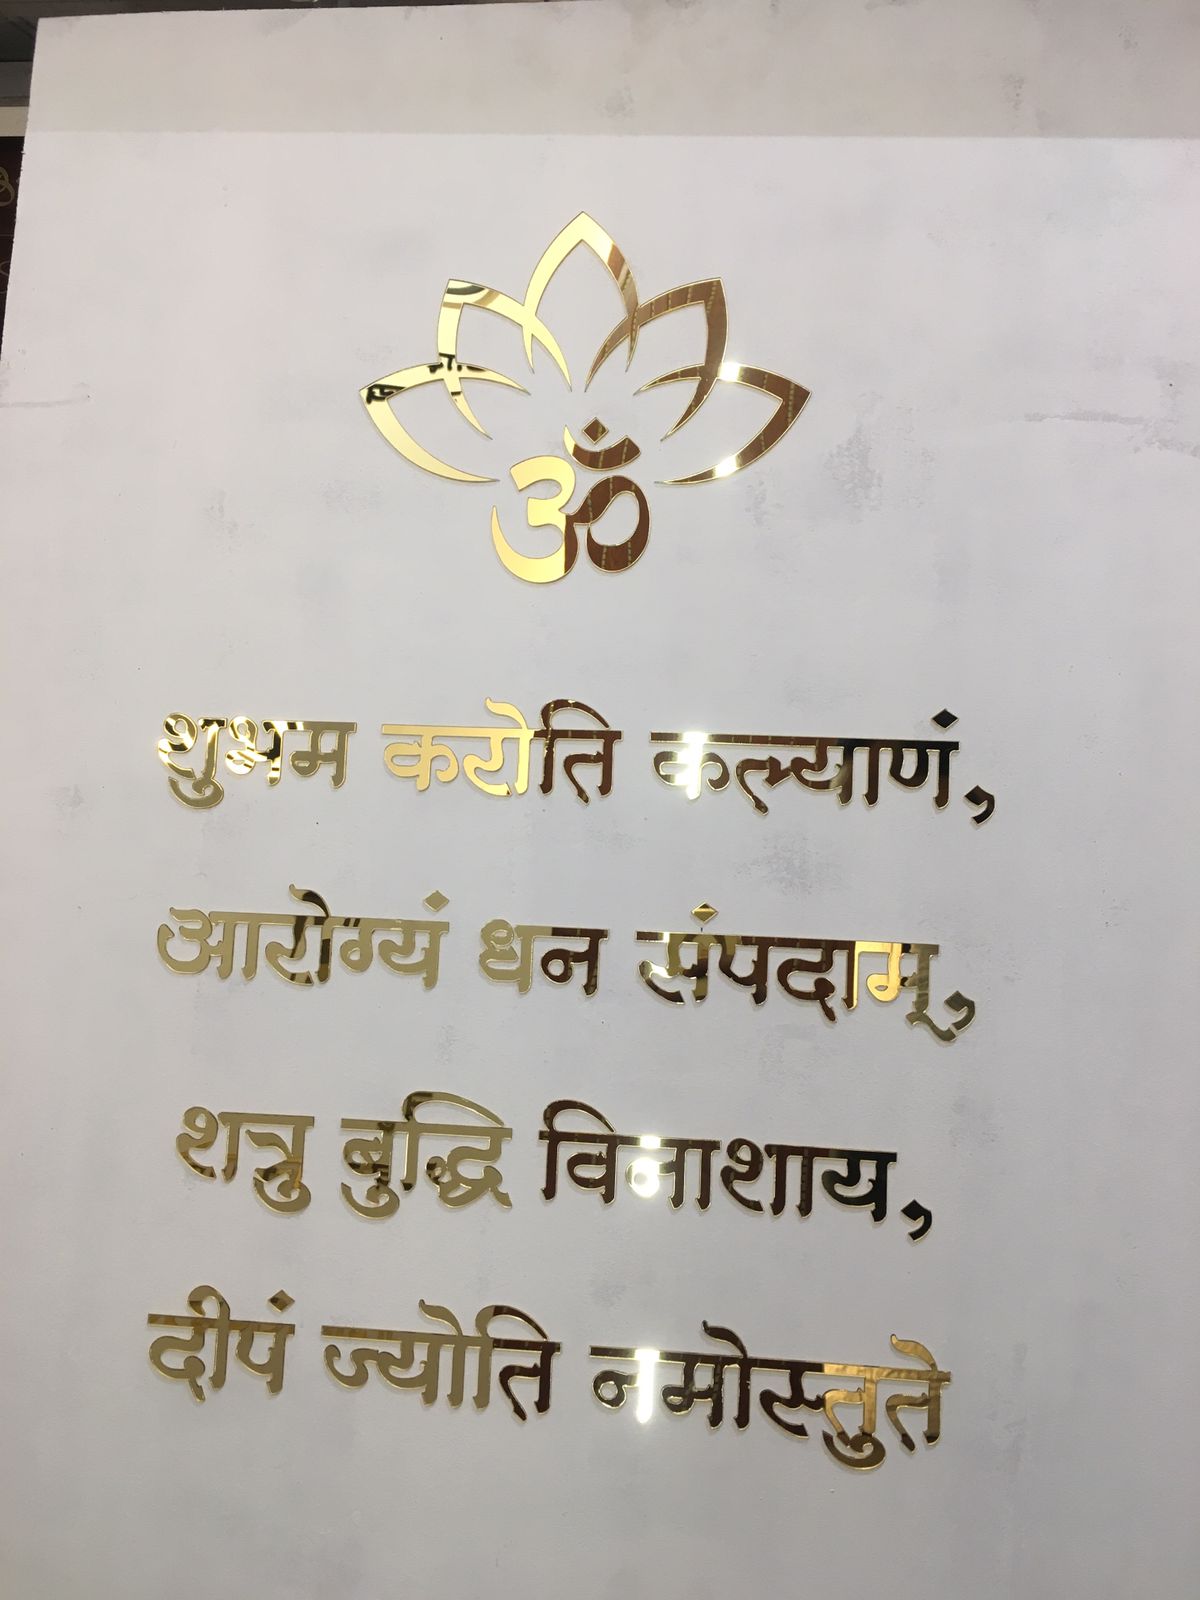 ॐ
शुभम करोति कल्याणं,
आरोग्यं धन संपदाम्,
शत्रु बुद्धि विनाशाय,
दीपं ज्योति नमोस्तुते